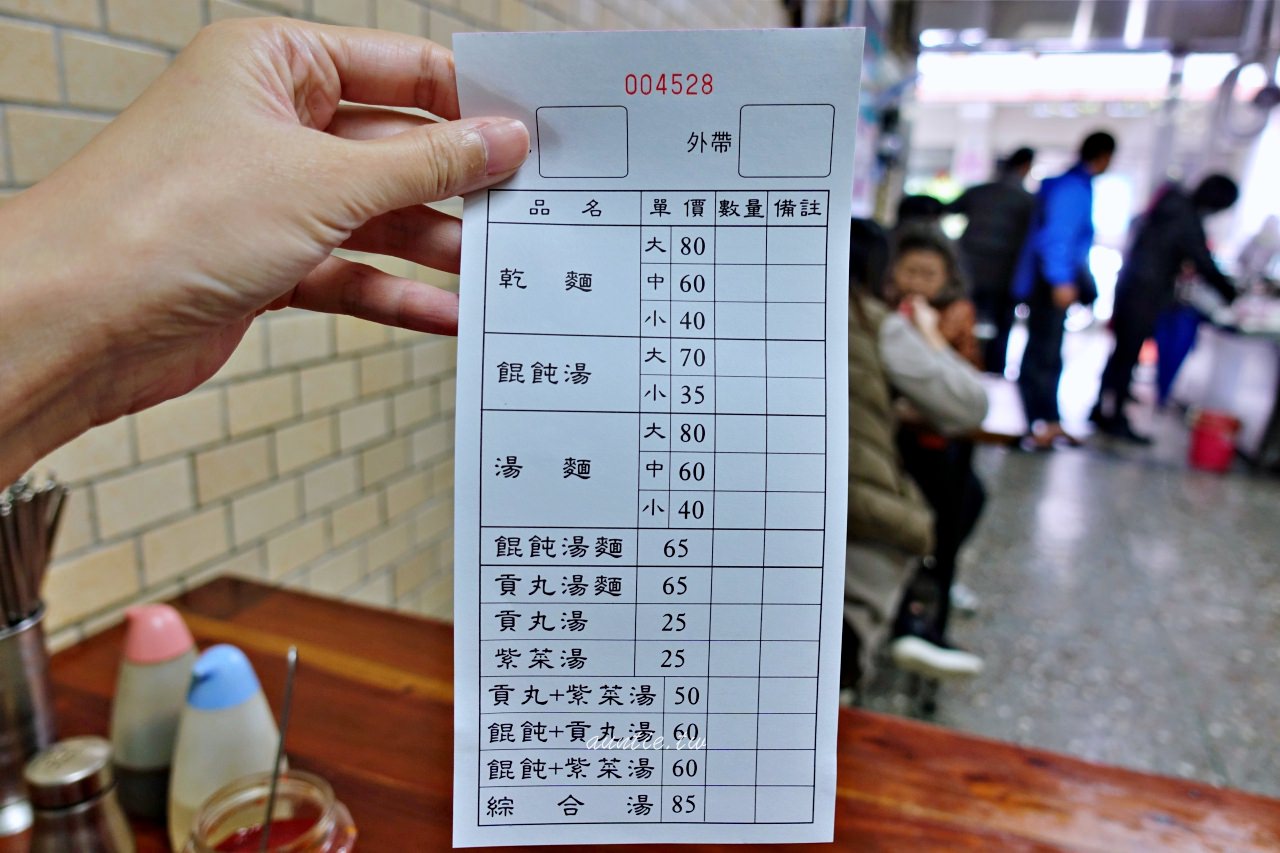 004528
外帶
品 名 單 價 數量 備註
乾 麵 大 80
中 60
小 40
餛飩湯 大 70
小 35
湯 麵 大 80
中 60
小 40
餛飩湯麵 65
貢丸湯麵 65
貢丸湯 25
紫菜湯 25
貢丸+紫菜湯 50
餛飩+貢丸湯 60
auntie.tw
餛飩+紫菜湯 60
綜 合 湯 85